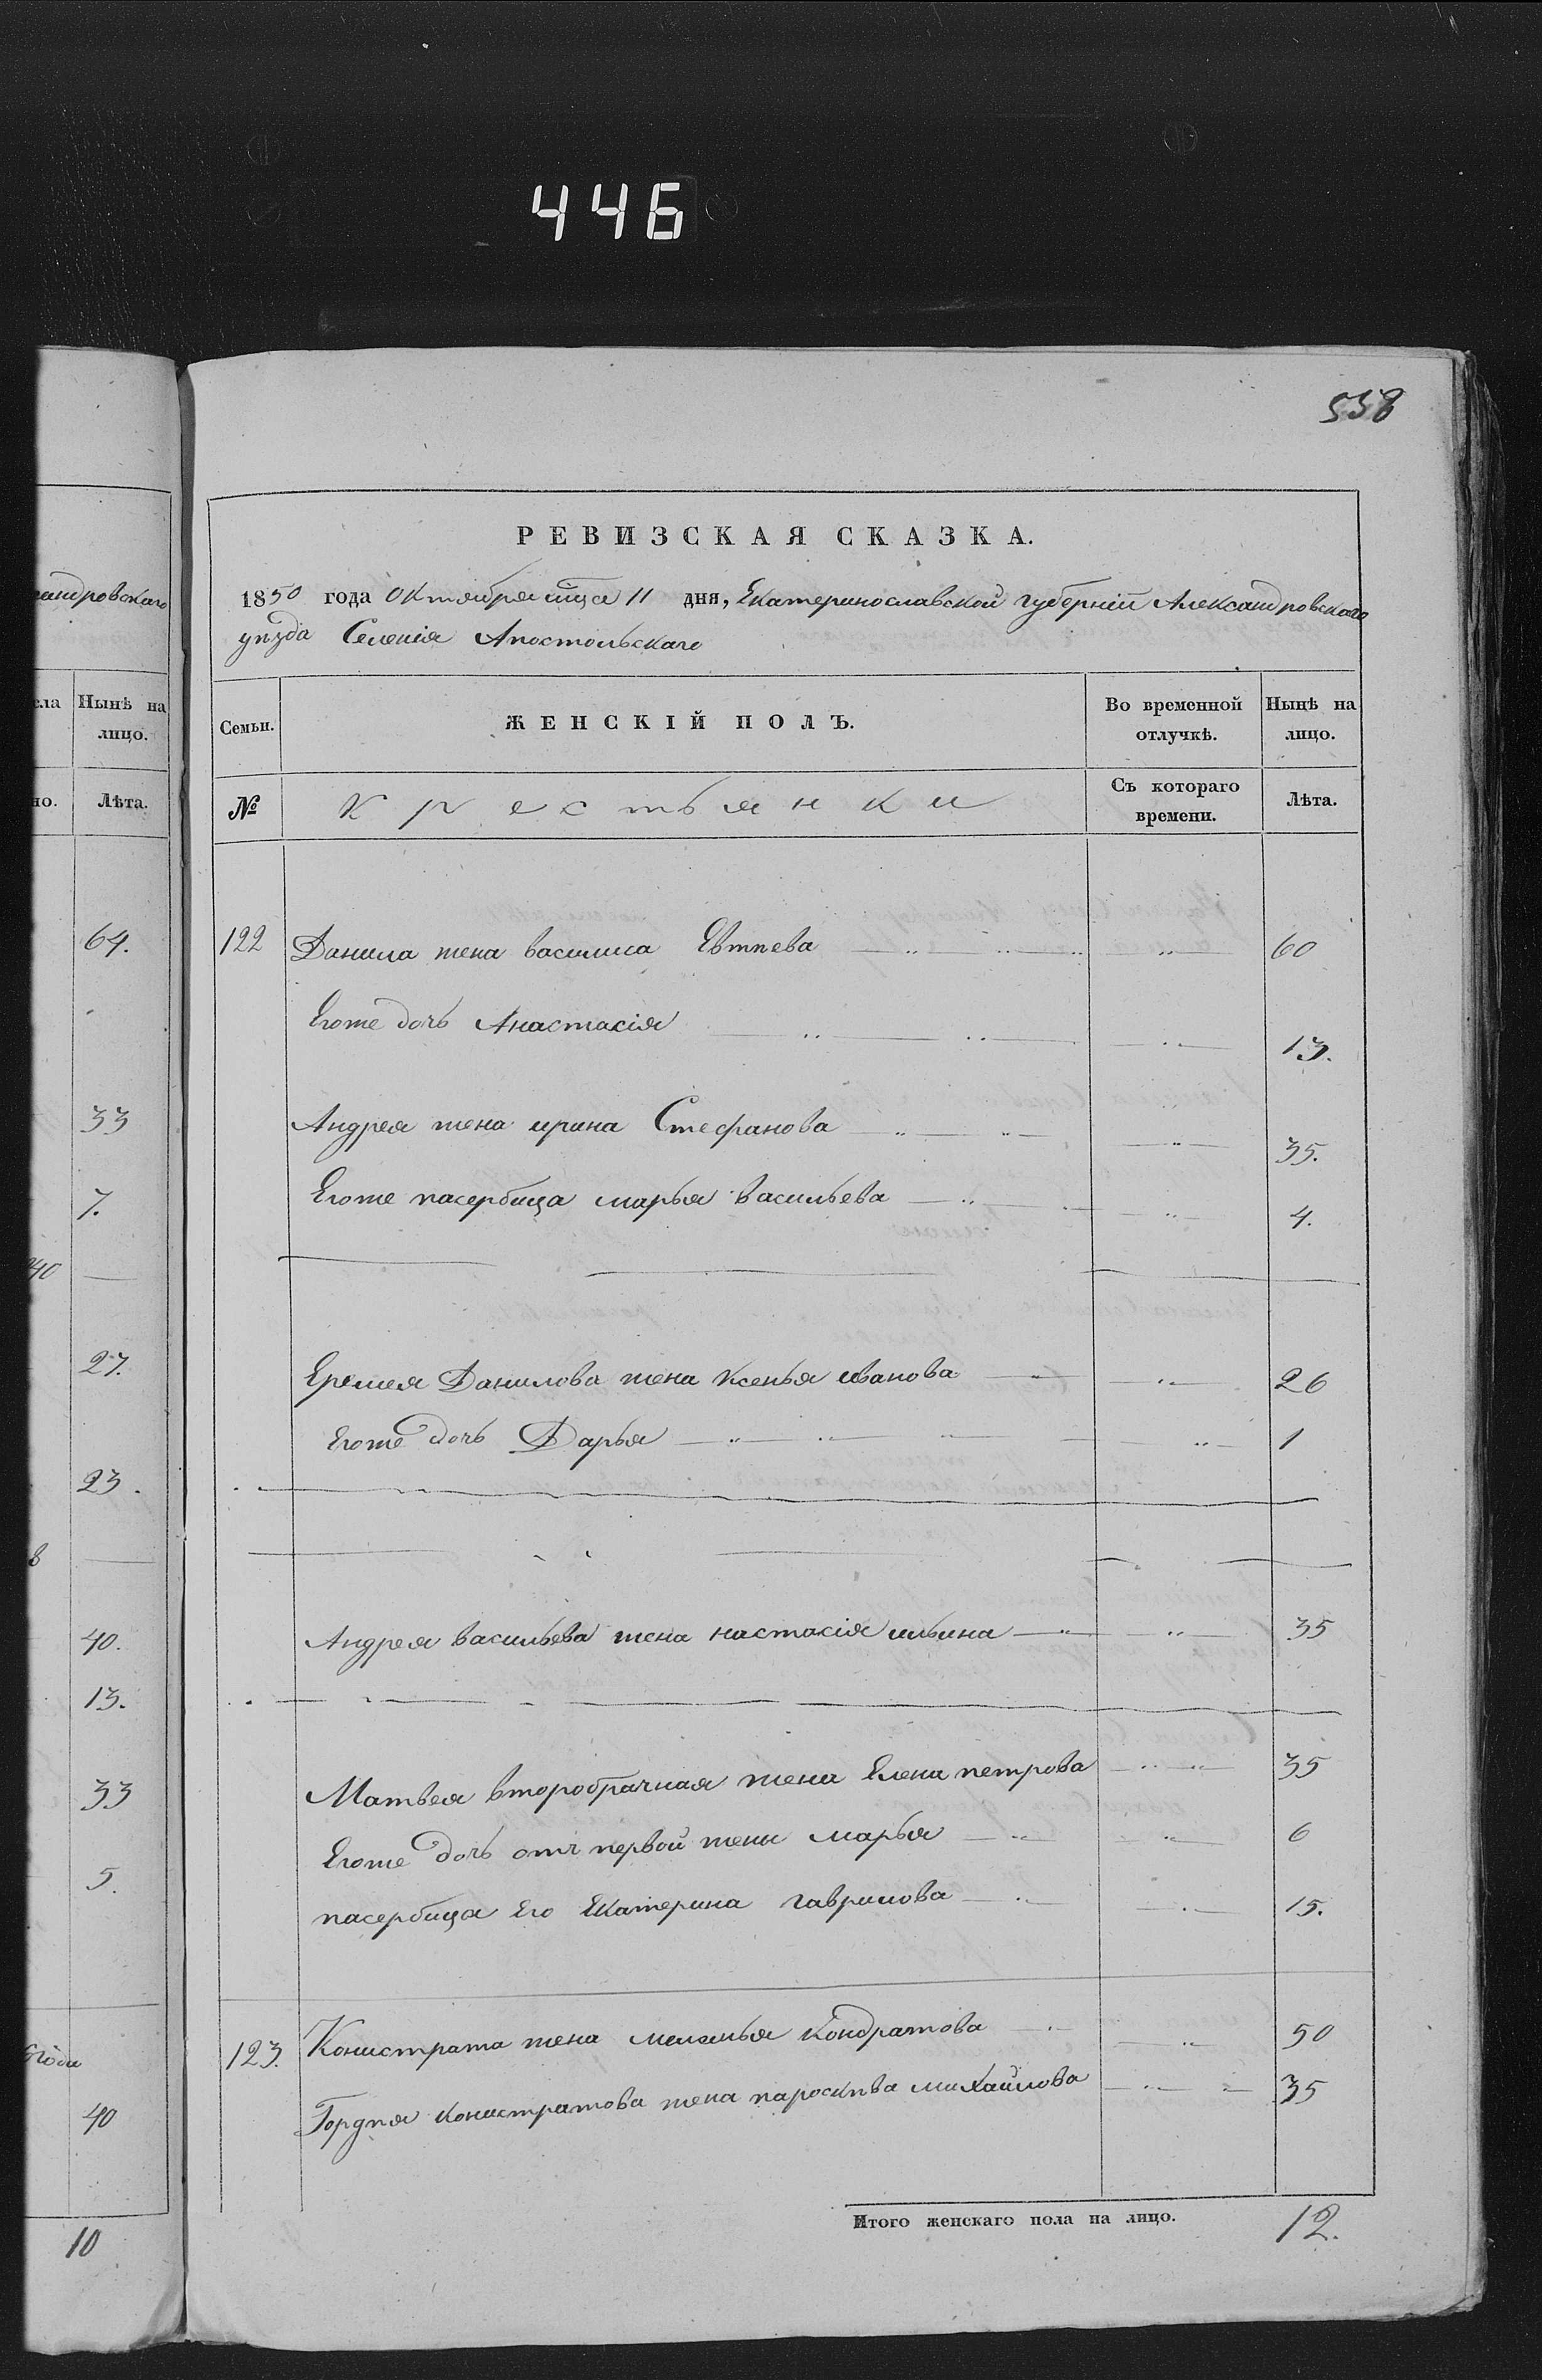 446
558
РЕВИЗСКАЯ СКАЗКА.
1850 года Октября мца 11 дня, Екатеринославской губерніи Александровскаго
уѣзда Селенія Апостольскаго
Семьи. ЖЕНСКІЙ ПОЛЪ. Во временной отлучкѣ. Нынѣ на лицо.
№ Крестьянки Съ котораго времени. Лѣта.
122 Данила жена василиса Евтѣева 60
Егоже дочь Анастасія 13.
Андрея жена ирина Стефанова 35.
Егоже пасербица марья васильева 4.
Еремея Данилова жена Ксенья иванова 26
Егоже дочь Дарья 1
Андрея васильева жена настасія ильина 35
Матвея второбрачная жена Елена петрова 35
Егоже дочь отъ первой жены марья 6
пасербица Его Екатерина гаврилова 15.
123. Конистрата жена меланья кондратова 50
Гордѣя конистратова жена параскѣва михайлова 35
Итого женскаго пола на лицо. 12.
андровскаго
сла Нынѣ на лицо.
но. Лѣта.
64.
33
7.
40
27.
23.
в
40.
13.
33
5.
года
40
10